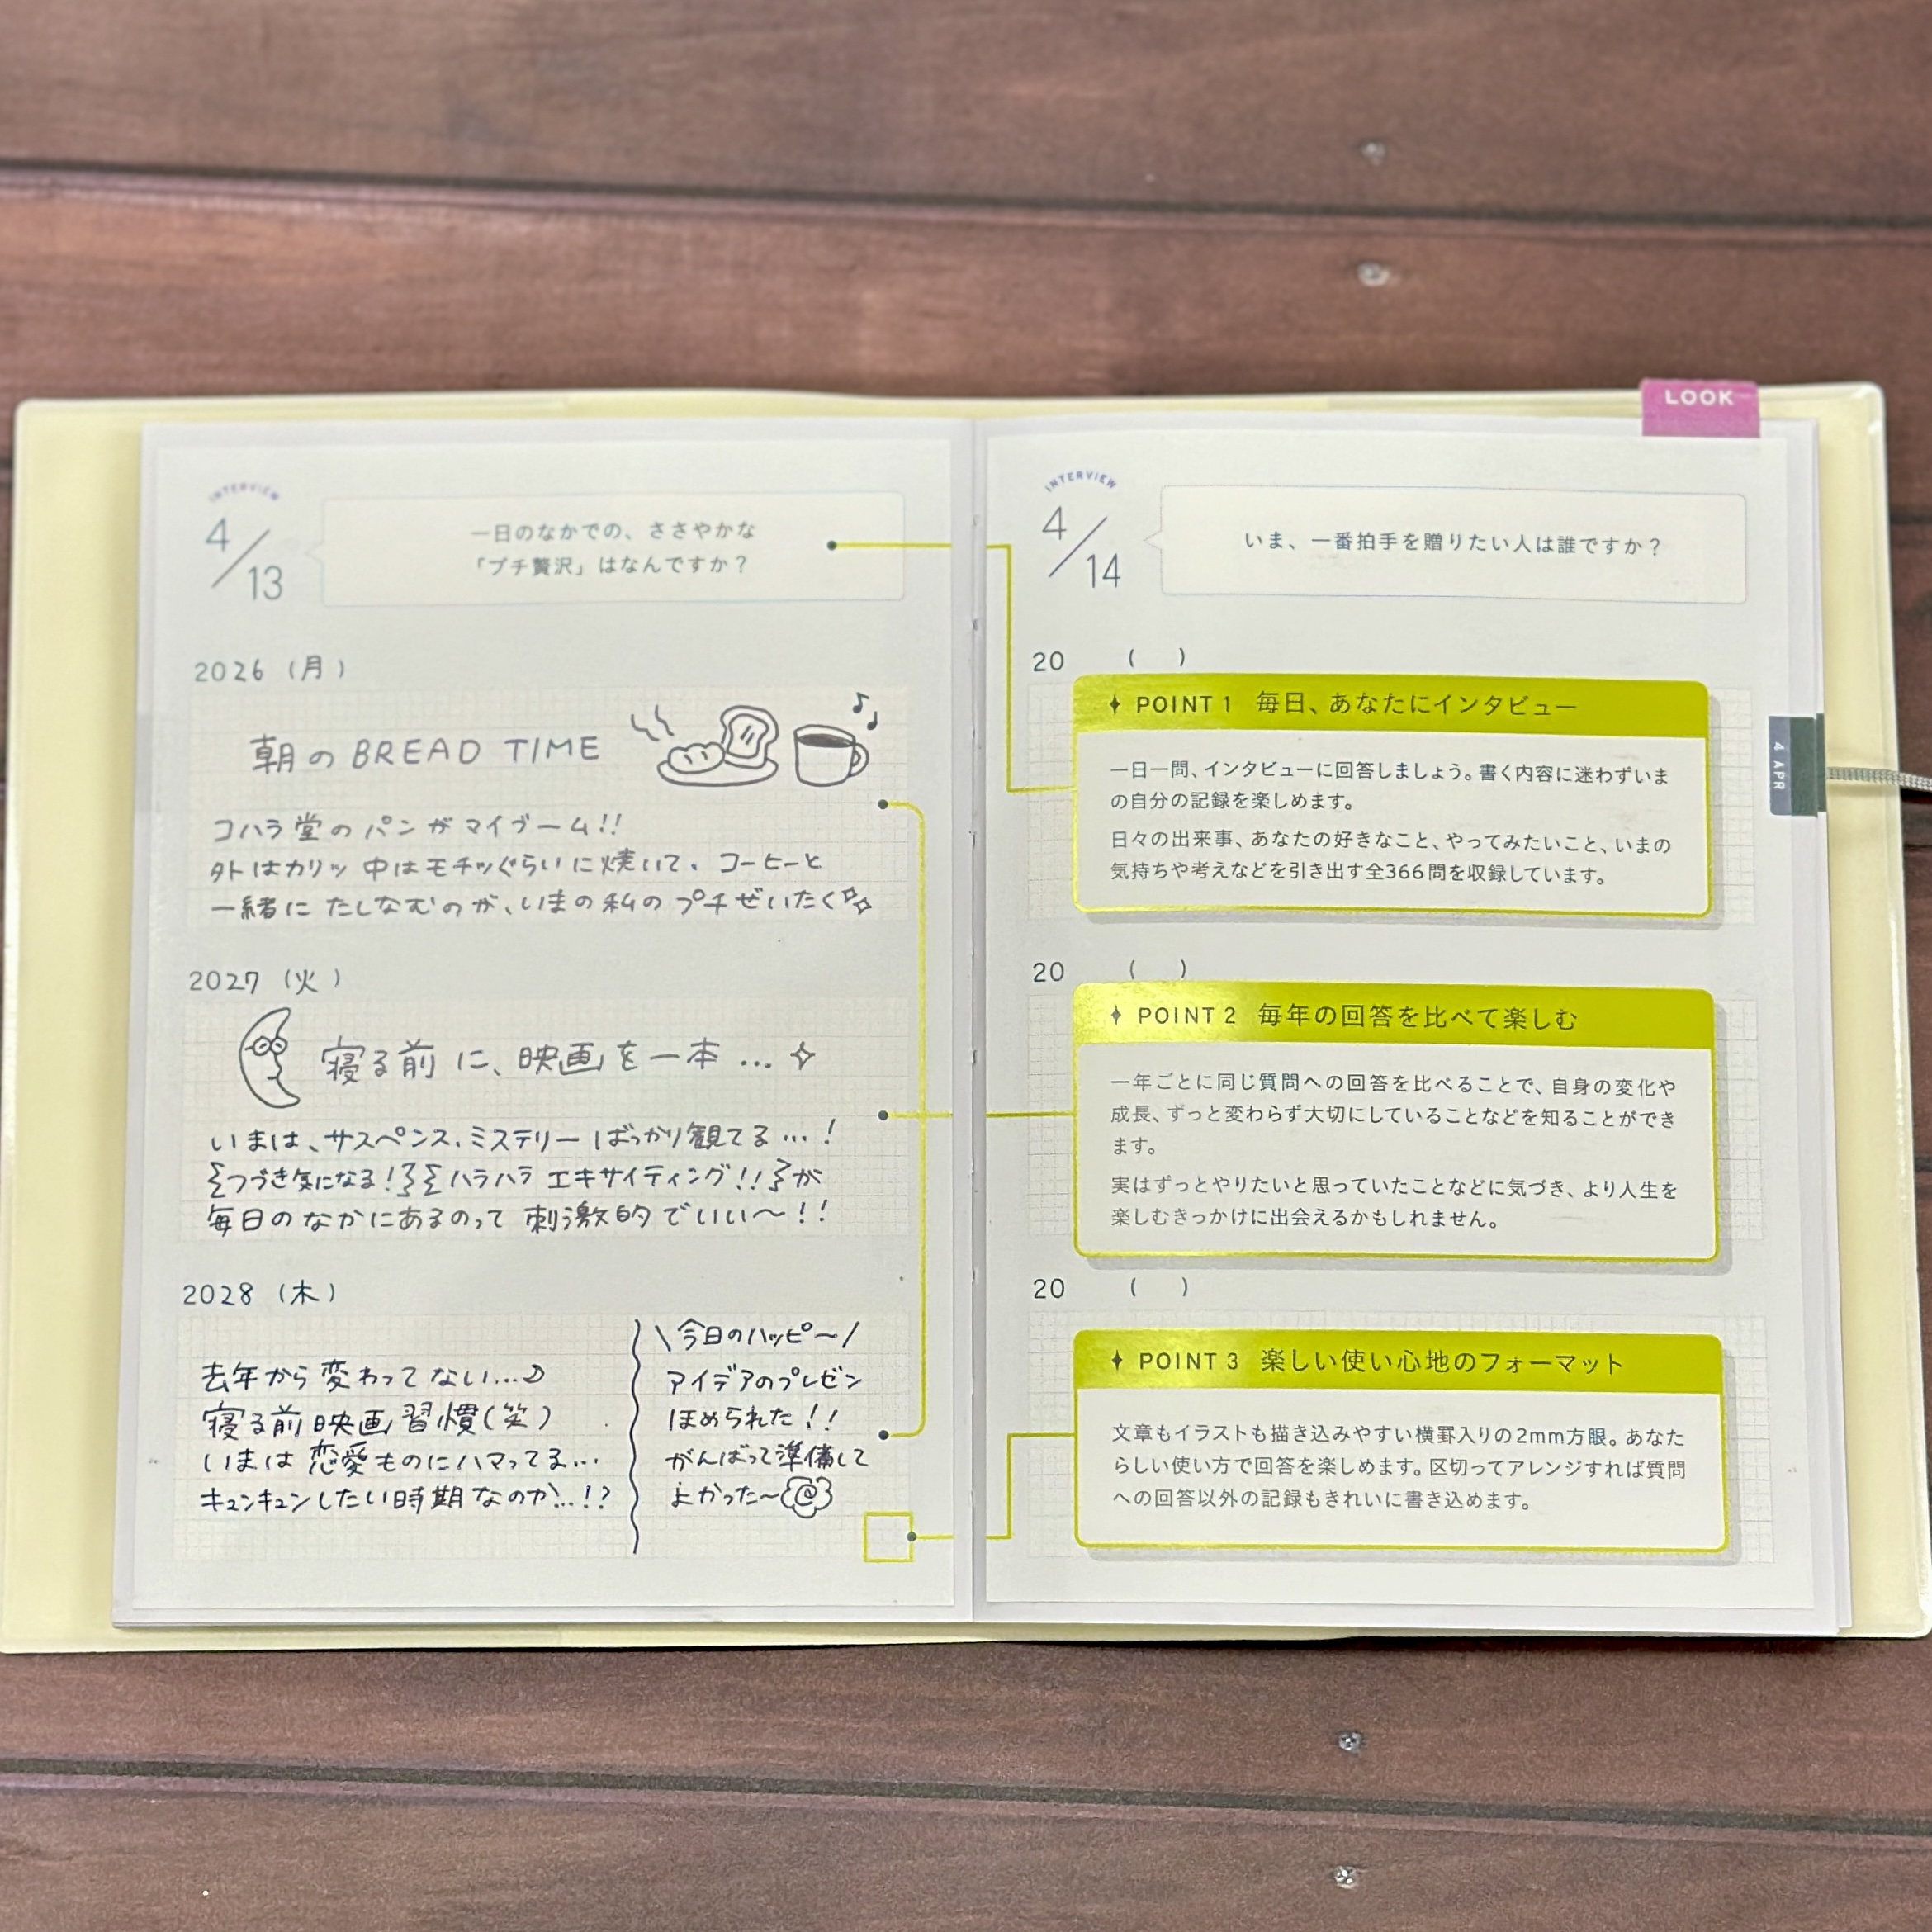 INTERVIEW
4/13
一日のなかでの、ささやかな
「プチ贅沢」はなんですか？
2026（月）
朝のBREAD TIME
コハラ堂のパンがマイブーム!!
外はカリッ 中はモチッぐらいに焼いて、コーヒーと
一緒に たしなむのが、いまの私のプチぜいたく
2027（火）
寝る前に、映画を一本…
いまは、サスペンス、ミステリーばっかり観てる…!
つづき気になる! ハラハラ エキサイティング!! が
毎日のなかにあるのって 刺激的でいい〜!!
2028（木）
去年から変わってない…♪
寝る前映画習慣(笑)
いまは恋愛ものにハマってる…
キュンキュンしたい時期なのか…!?
\今日のハッピ〜/
アイデアのプレゼン
ほめられた!!
がんばって準備して
よかった〜
LOOK
INTERVIEW
4/14
いま、一番拍手を贈りたい人は誰ですか？
20 （ ）
POINT 1 毎日、あなたにインタビュー
一日一問、インタビューに回答しましょう。書く内容に迷わずいま
の自分の記録を楽しめます。
日々の出来事、あなたの好きなこと、やってみたいこと、いまの
気持ちや考えなどを引き出す全366問を収録しています。
20 （ ）
POINT 2 毎年の回答を比べて楽しむ
一年ごとに同じ質問への回答を比べることで、自身の変化や
成長、ずっと変わらず大切にしていることなどを知ることができ
ます。
実はずっとやりたいと思っていたことなどに気づき、より人生を
楽しむきっかけに出会えるかもしれません。
20 （ ）
POINT 3 楽しい使い心地のフォーマット
文章もイラストも描き込みやすい横罫入りの2mm方眼。あなた
らしい使い方で回答を楽しめます。区切ってアレンジすれば質問
への回答以外の記録もきれいに書き込めます。
4 APR